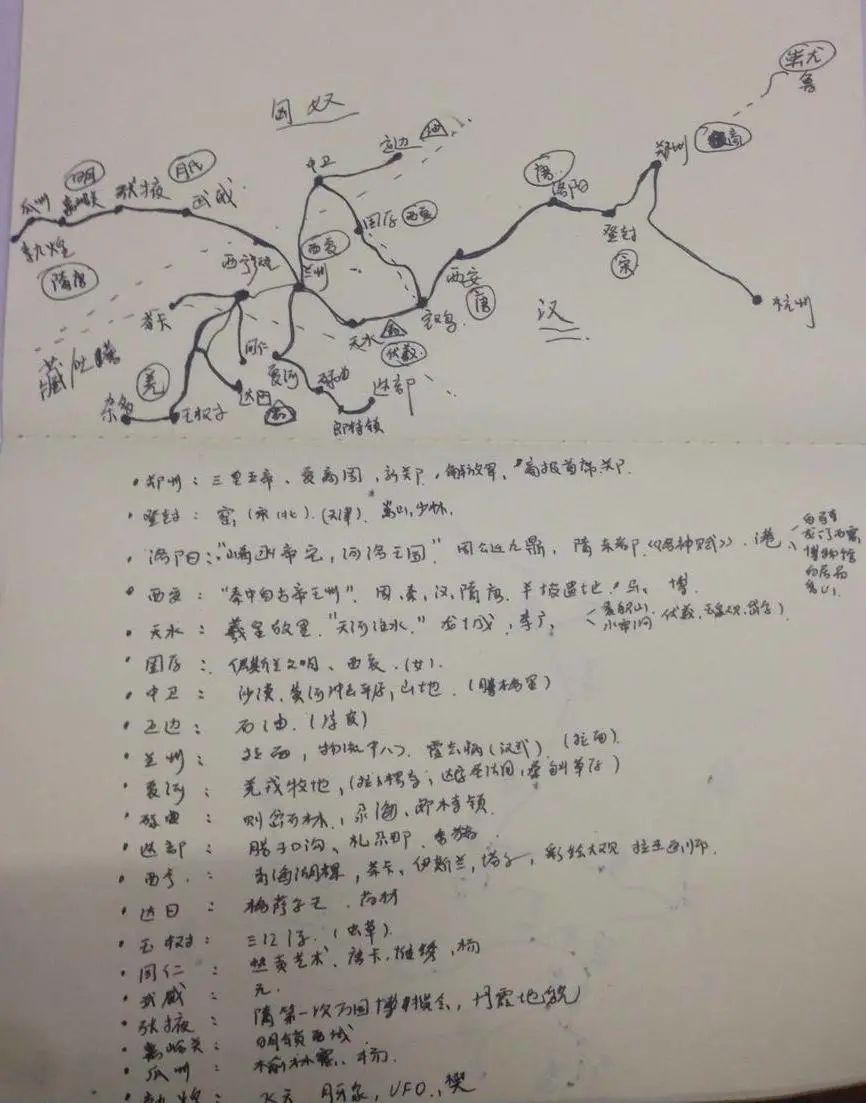 蚩尤
鲁
匈奴
郑州
商
定边
中卫
月氏
唐
洛阳
瓜州
嘉峪关
张掖
武威
固原
西夏
登封
宋
敦煌
西夏
隋唐
西宁
兰州
西安
唐
宝鸡
汉
杭州
茶卡
天水
伏羲
藏
同仁
夏河
羌
达日
碌曲
迭部
郎木寺镇
杂多
玉树
·郑州：三皇五帝、夏商周，新郑，解放军，
·登封：窑(宋)(北)(天津)、嵩山，少林.
·洛阳："崤函帝宅，河洛王国"周公迁九鼎，隋东都《洛神赋》.
白马寺
龙门石窟
博物馆
白居易
·西安："秦中自古帝王州"周、秦、汉、隋唐、半坡遗址、马、博
·天水：羲皇故里."天河注水."龙城，李广，
麦积山、伏羲、
·固原：伊斯兰文明、西夏.
·中卫：沙漠、黄河冲击平原，山地.(腾格里)
·定边：石油.
·兰州：拉面，霍去病(汉武).(拉面)
·夏河：羌戎牧地，(拉卜楞寺；桑科草原)
·碌曲：则岔石林、尕海、郎木寺镇
·迭部：腊子口沟、扎尕那、
·西宁：青海湖，茶卡、伊斯兰，塔尔，彩绘大观
·达日：格萨尔王、药材
·玉树：三江源.(虫草)
·同仁：热贡艺术、唐卡，堆绣，杨
·武威：元.
·张掖：隋第一次万国博览会，丹霞地貌
·嘉峪关：明锁西域
·瓜州：榆林窟、杨.
·敦煌：飞天、月牙泉，UFO，樊